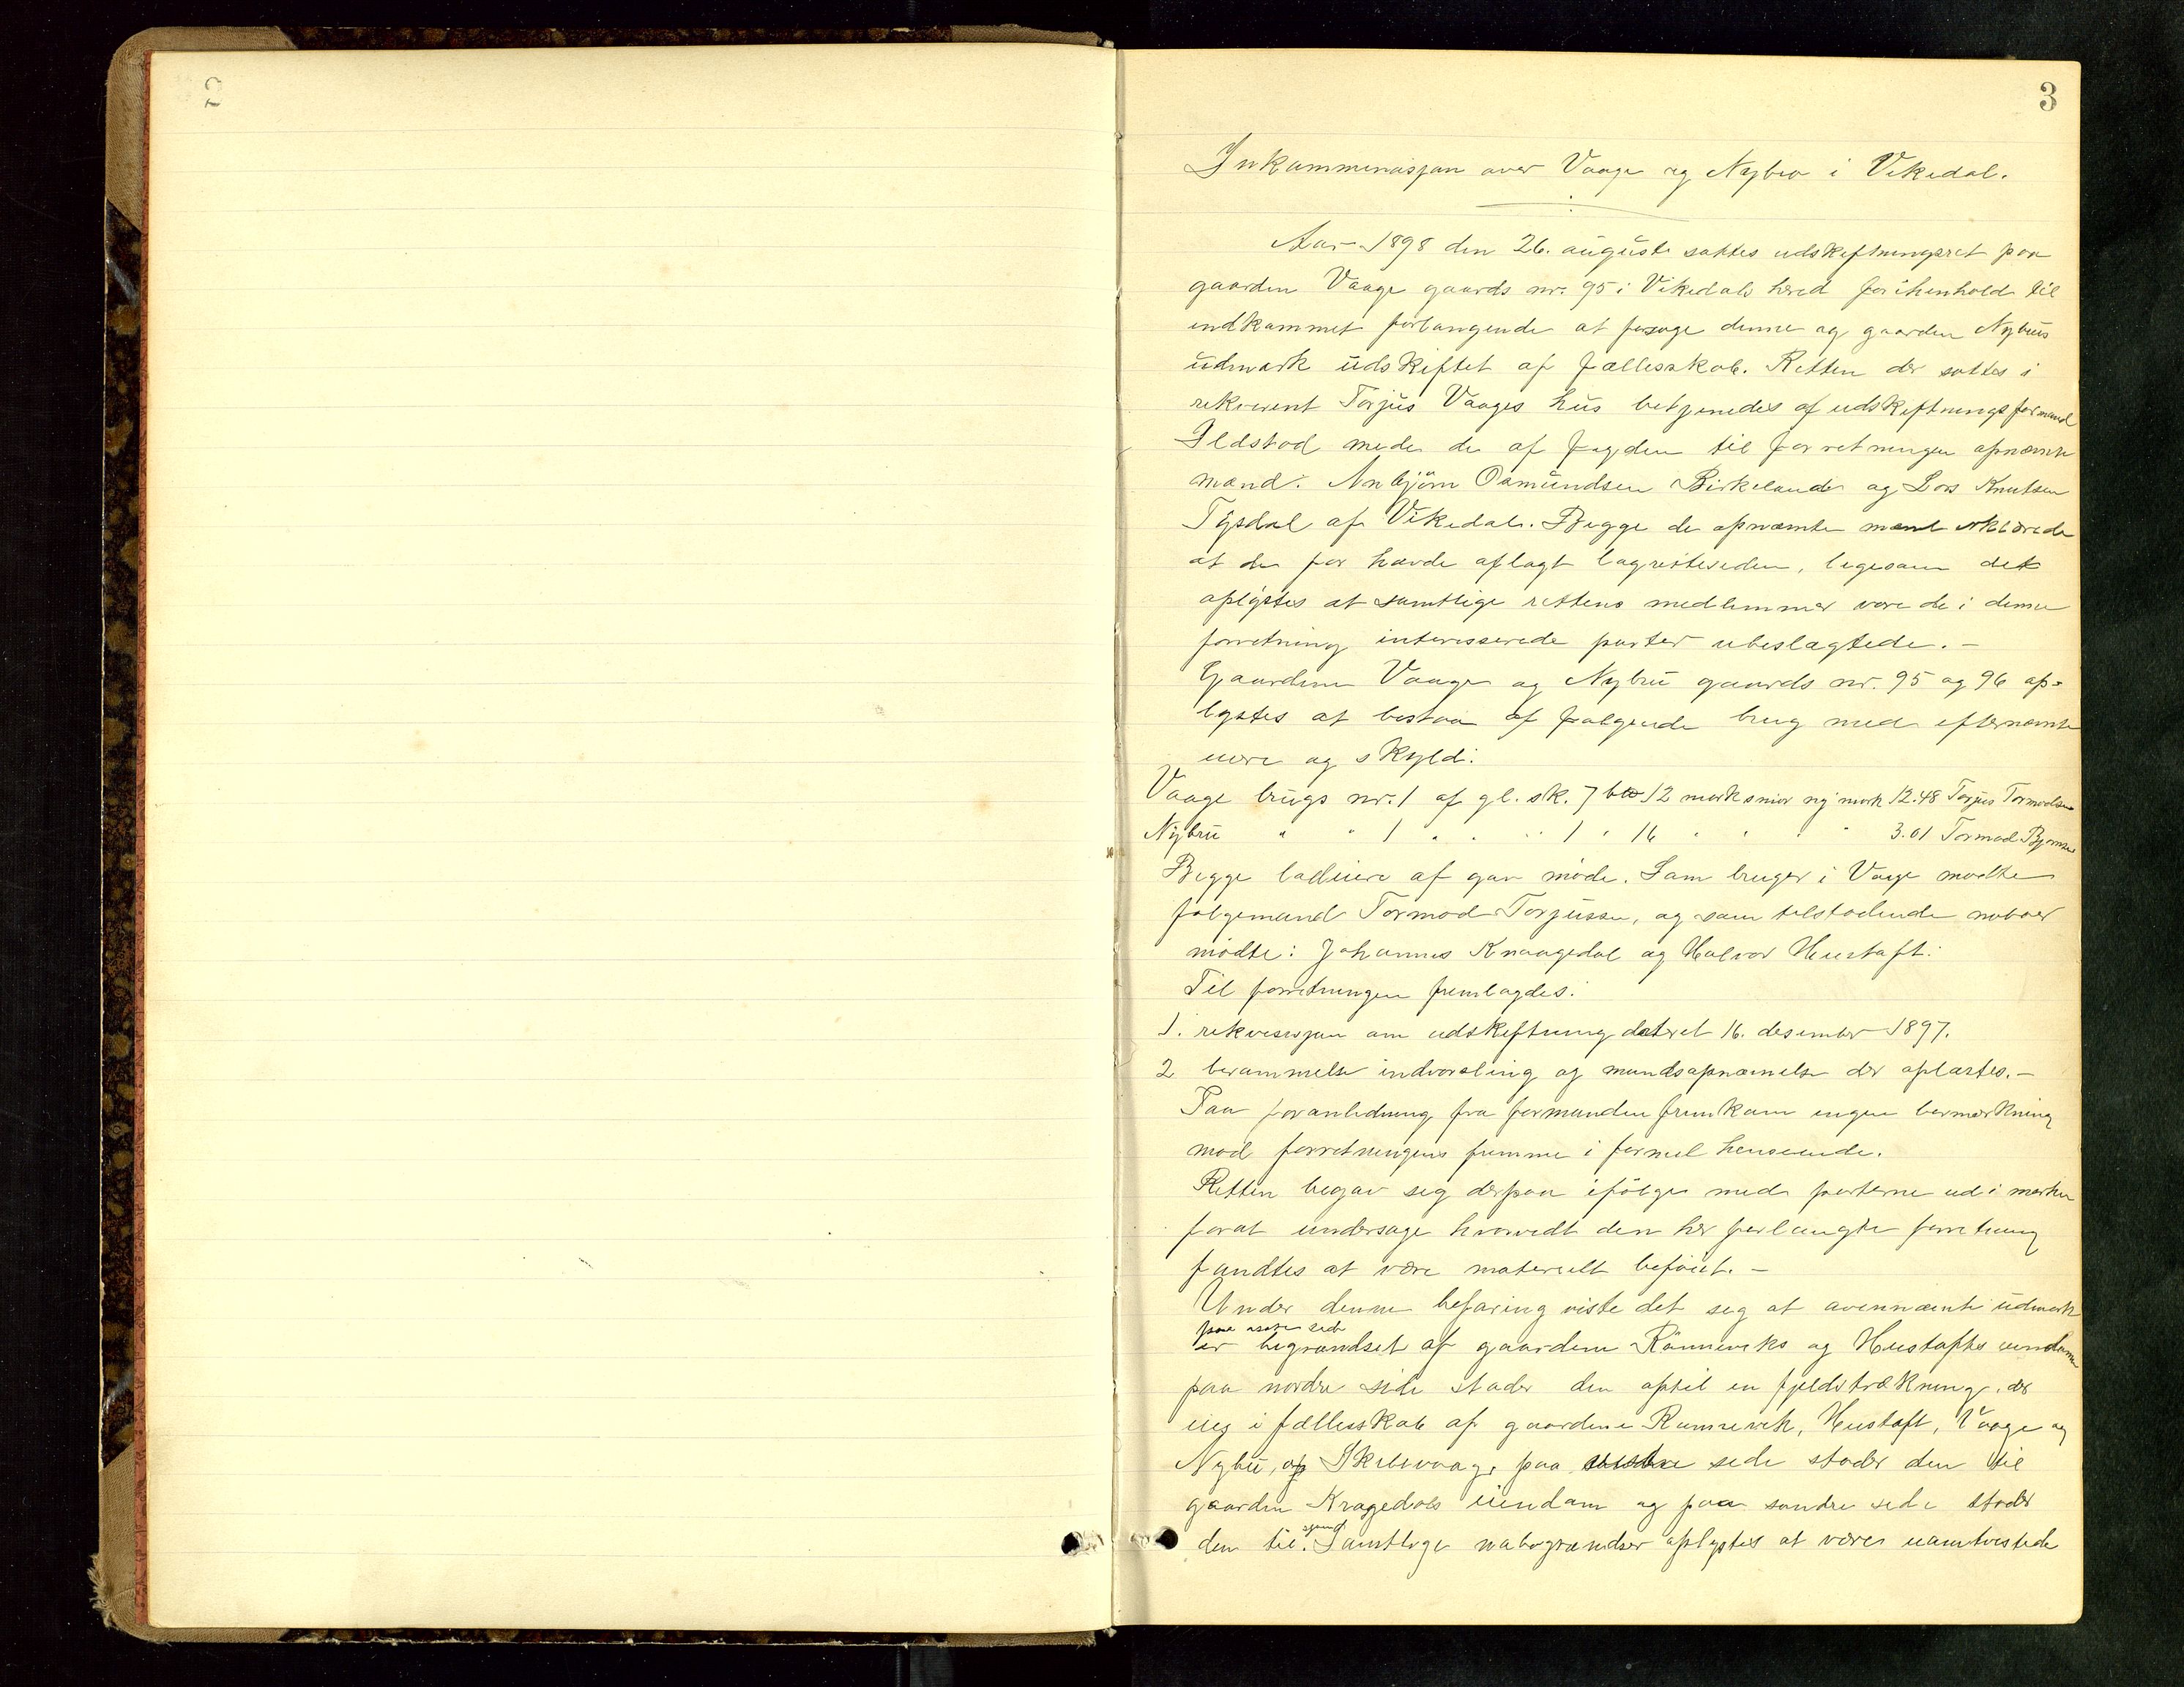 3
Inkamminasjon over Vaage og Nybru i Vikedal.
Aar 1898 den 26. august sattes udskiftningsret paa
gaarden Vaage gaards nr. 95 i Vikedals hered forihenhold til
indkommet forlangende at forsøge denne og gaarden Nybrus
udmark udskiftet af fællesskab. Retten der sattes i
rekvirent Torjus Vaages hus betjenedes af udskiftningsformand
Ildstad med de af fogden til forretningen opnævnte
mænd: Arnbjørn Osmundsen Birkeland og Lars Knutsen
Tysdal af Vikedal. Begge de opnævnte mænd erklærede
at de før havde aflagt lagretteseden, ligesom det
oplystes at samtlige rettens medlemmer vare de i denne
forretning interesserede parter ubeslægtede. -
Gaardene Vaage og Nybru gaards nr. 95 og 96 op-
lystes at bestaa af følgende brug med efternævnte
eiere og skyld:
Vaage brugs nr. 1 af gl. sk. 7 12 mark smør ny mark 12.48 Torjus Tormodsen
Nybru " " 1 " " " 1 " 16 " " " " 3.01 Tormod Bjørnsen
Begge lodeiere af gav møde. Som bruger i Vaage mødte
følgemand Tormod Torjussen, og som tilstødende naboer
mødte: Johannes Knaagedal og Halvor Hustoft.
Til forretningen fremlagdes:
1. rekvisisjon om udskiftning dateret 16. desember 1897.
2 berammelse indvarsling og mandsopnævnelse der oplæstes. -
Paa foranledning fra formanden fremkom ingen bemærkning
mod forretningens fremme i formel henseende.
Retten begav seg derpaa ifølge med parterne ud i marken
forat undersøge hvorvidt den her forlangte forretning
fandtes at være materielt beføiet. -
Under denne befaring viste det seg at ovennævnte udmark
paa side
er begrændset af gaardene Rønneviks og Hustofts eiendomme
paa nordre side støder den optil en fjeldstrækning, der
eies i fællesskab af gaardene Rønnevik, Hustoft, Vaage og
Nybru, og paa side støder den til
gaarden Kragedals eiendom og paa søndre side støder
den til. Samtlige nabogrændser oplystes at være uomtvistede